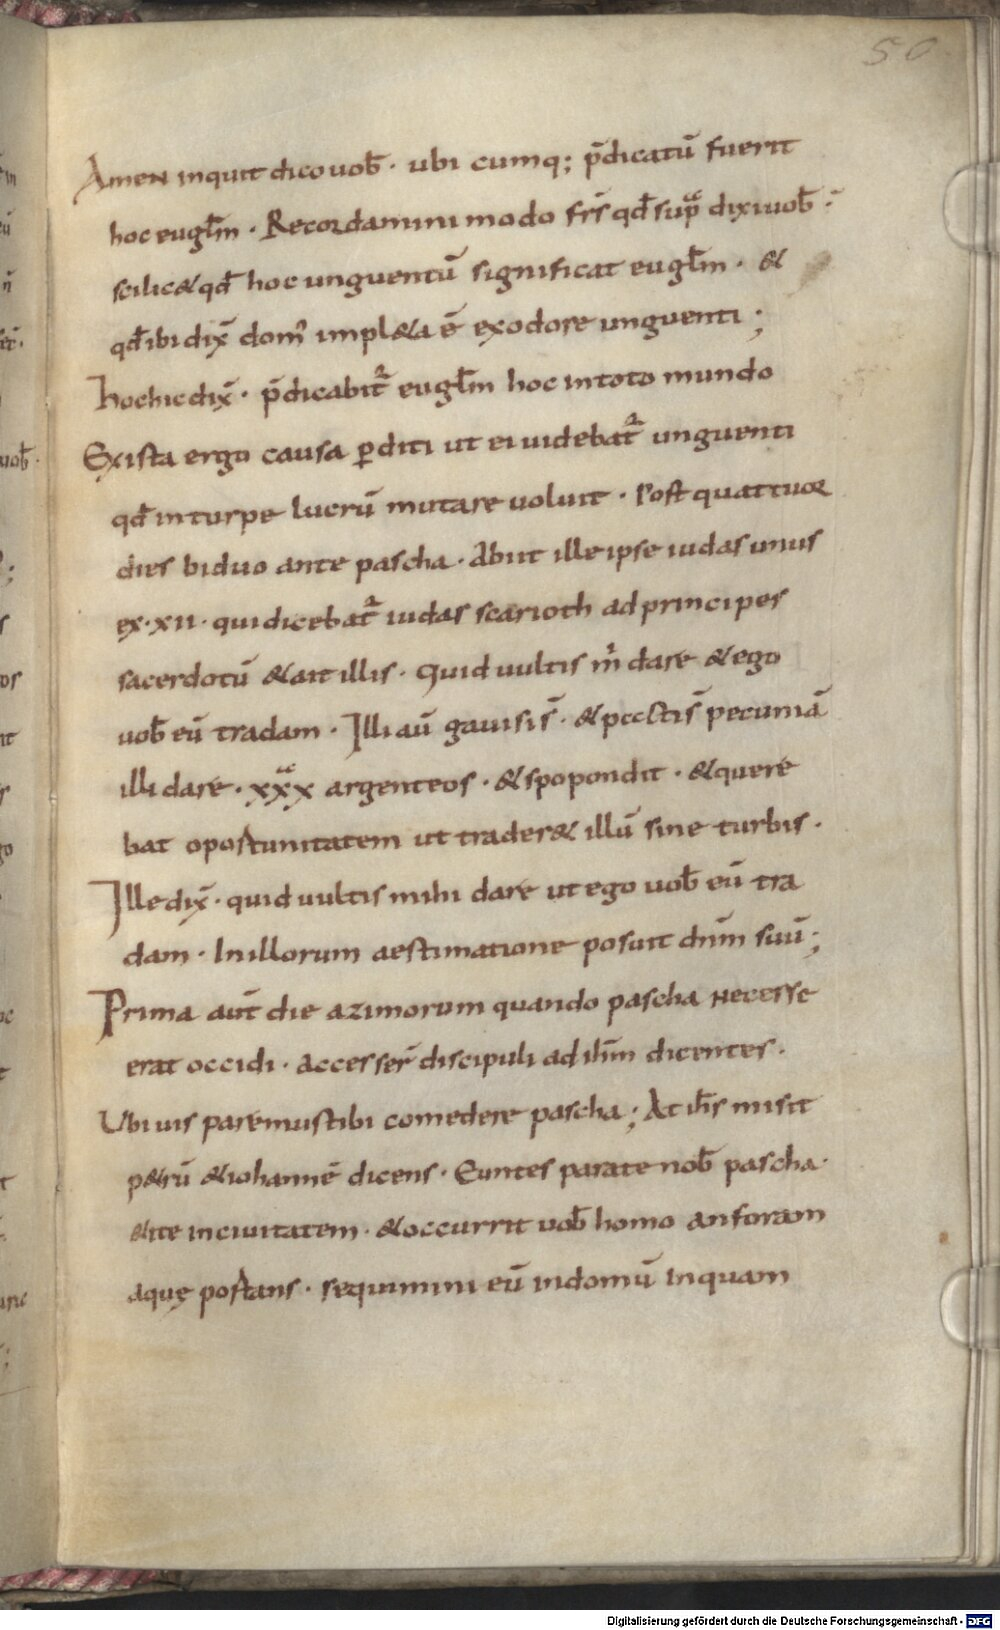 50
Amen inquit dico uob̅ · ubi cumq; p̅dicatu̅ fuerit
hoc eugl̅m · Recordamini modo fr̅s qd̅ supᷓ dixi uob̅ ·
scilic& qd̅ hoc unguentu̅ significat eugl̅m · &
qd̅ ibi dix̅ dom᷒ impl&a e̅ ex odore unguenti ;
hoc hic dix̅ · p̅dicabit᷑ eugl̅m hoc in toto mundo
Ex ista ergo causa ꝑditi ut ei uidebat᷑ unguenti
qd̅ in turpe lucru̅ mutare uoluit · Post quattuor
dies biduo ante pascha · Abiit ille ipse iudas unus
ex · xii · qui dicebat᷑ iudas scarioth ad principes
sacerdotu̅ & ait illis · Quid uultis m̊ dare & ego
uob̅ eu̅ tradam · Illi au̅ gauisi s̅ · & pacti s̅ pecunia̅
illi dare · xxͣx argenteos · & spopondit · & quere
bat oportunitatem ut trader& illu̅ sine turbis ·
Ille dix̅ · quid uultis mihi dare ut ego uob̅ eu̅ tra
dam · In illorum aestimatione posuit dn̅m suu̅ ;
Prima aut̅ die azimorum quando pascha necesse
erat occidi · accesser̅ discipuli ad ih̅m dicentes ·
Ubi uis paremus tibi comedere pascha ; At ih̅s misit
p&ru̅ & iohanne̅ dicens · Euntes parate nob̅ pascha ·
& ite in ciuitatem · & occurrit uob̅ homo anforam
aquę portans · sequimini eu̅ in domu̅ in quam
Digitalisierung gefördert durch die Deutsche Forschungsgemeinschaft - DFG